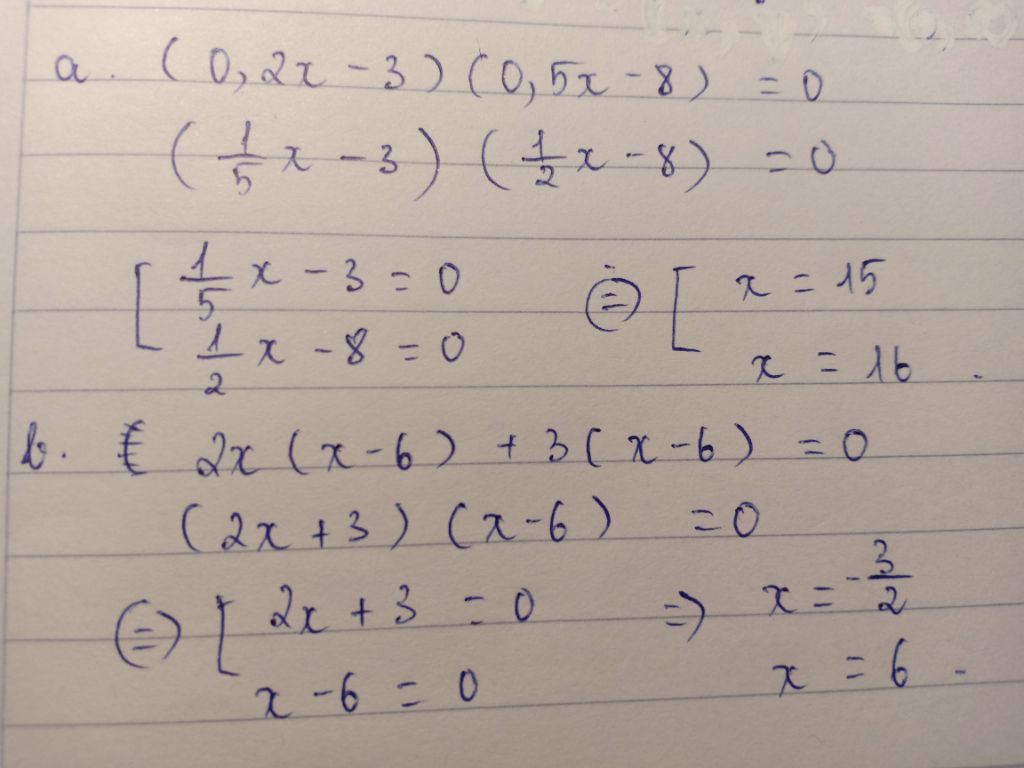 a. (0,2x - 3)(0,5x - 8) = 0
(1/5 x - 3) (1/2 x - 8) = 0
[ 1/5 x - 3 = 0 ⇔ [ x = 15
1/2 x - 8 = 0 x = 16.
b. 2x(x - 6) + 3(x - 6) = 0
(2x + 3)(x - 6) = 0
⇔ [ 2x + 3 = 0 ⇒ x = -3/2
x - 6 = 0 x = 6.